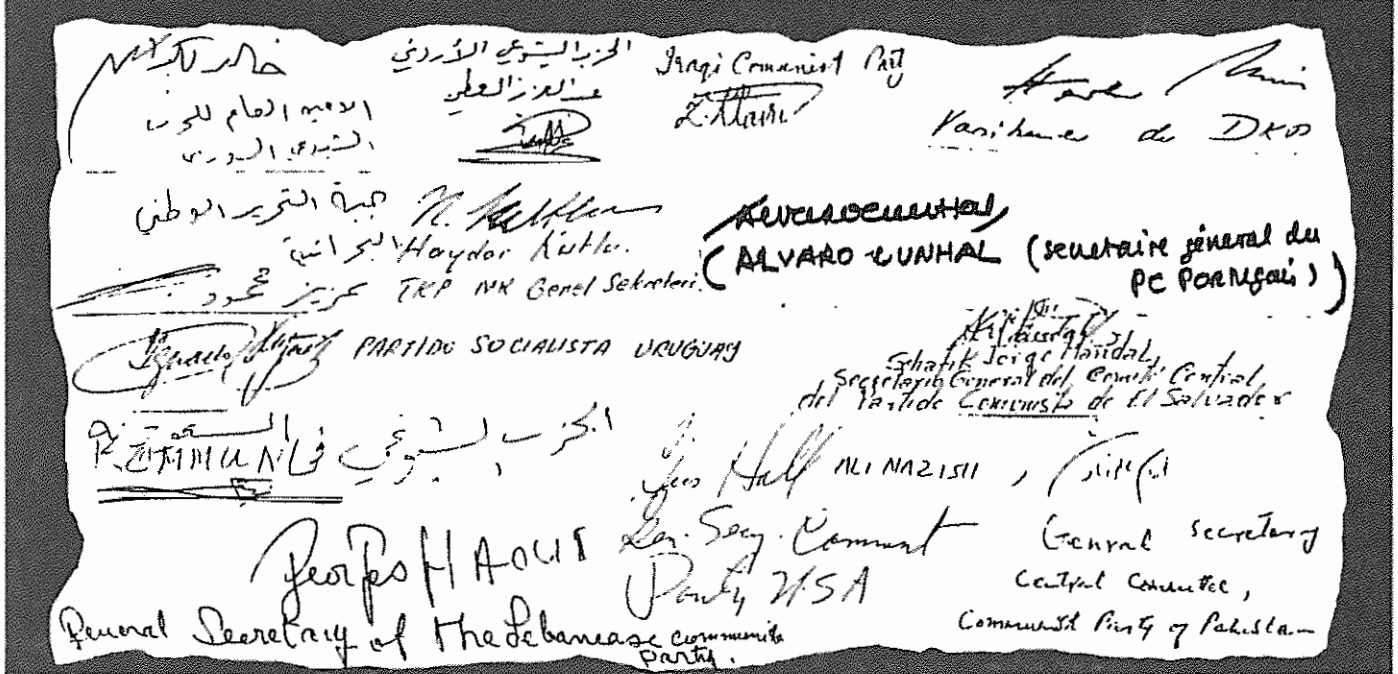 خالد بكداش
الامين العام للحزب
الشيوعي السوري
الحزب الشيوعي الأردني
عبد العزيز العطي
Iraqi Communist Party
Vorsitzender de DKP
جبهة التحرير الوطني
البحرانية
عزيز محمود
Haydar Kutlu.
TKP MK Genel Sekreteri.
(ALVARO CUNHAL (secretaire géneral du
PC Portugais)
PARTIDO SOCIALISTA URUGUAY
Schafik Jorge Handal,
Secretario General del Comité Central
del Partido Comunista de El Salvador
الحزب الشيوعي في
السعودية
Gus Hall
Gen. Secy. Commust
Party USA
ALI NAZISH,
General Secretary
Central Committee,
Communist Party of Pakistan
Georges HAOUI
General Secretary of the Lebanease communite
party.